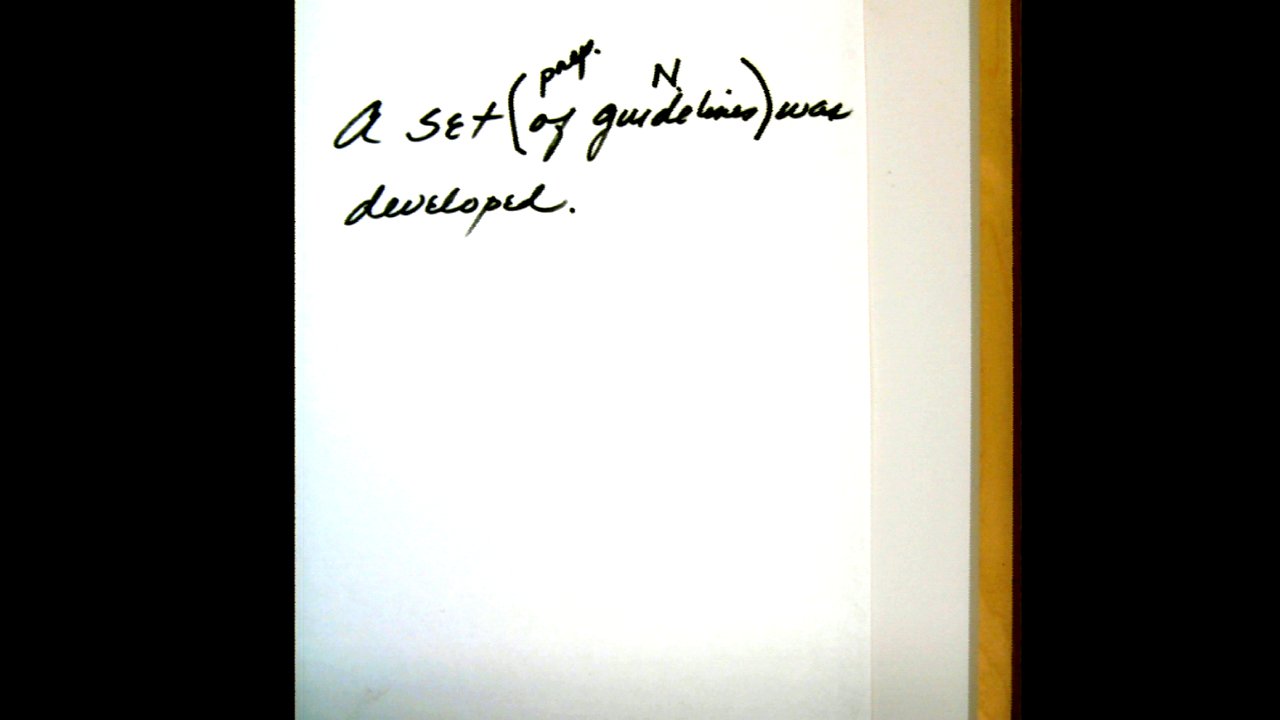 prep. N.
A set (of guidelines) was
developed.